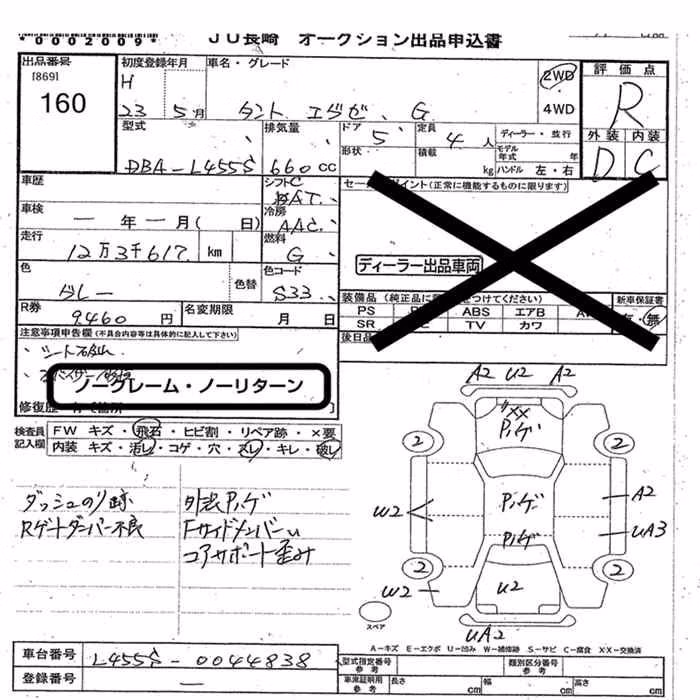 *0002009*
JU長崎 オークション出品申込書
出品番号 初度登録年月 車名・グレード 2WD 評価点
[869]
160 H 23 5月 タント エグゼ G 4WD R
型式 排気量 ドア 5 定員 4人 ディーラー・並行 外装 内装
DBA-L455S 660cc 形状 積載 kg モデル年式 年 ハンドル 左・右 D C
車歴 シフト セールスポイント(正常に機能するものに限ります)
車検 ー年ー月( 日) 冷房 AAC
走行 12万3千617 km 燃料 G ディーラー出品車両
色 グレー 色替 色コード S33
装備品(純正品に をつけてください) 新車保証書
R券 9460円 名変期限 月 日 PS ABS エアB 無
SR TV カワ
注意事項申告欄(不具合内容等は具体的に記入して下さい) 後日品
ノークレーム・ノーリターン
修復歴
検査員記入欄 FW キズ・飛石・ヒビ割・リペア跡・×要
内装 キズ・汚レ・コゲ・穴・スレ・キレ・破レ
A2 U2 A2
XX
ハゲ
2 2
ダッシュのり跡 外装ハゲ
Rゲートダンパー不良 Fサイドメンバーu
コアサポート歪み
W2 ハゲ A2
ハゲ UA3
2 2
W2 U2
スペア
UA2
A-キズ E-エクボ U-凹み W-補修跡 S-サビ C-腐食 XX-交換済
車台番号 L455S-0044838 型式指定番号 類別区分番号
参考 参考
登録番号 ー 車庫証明用 長さ cm 幅 cm 高さ cm
参考